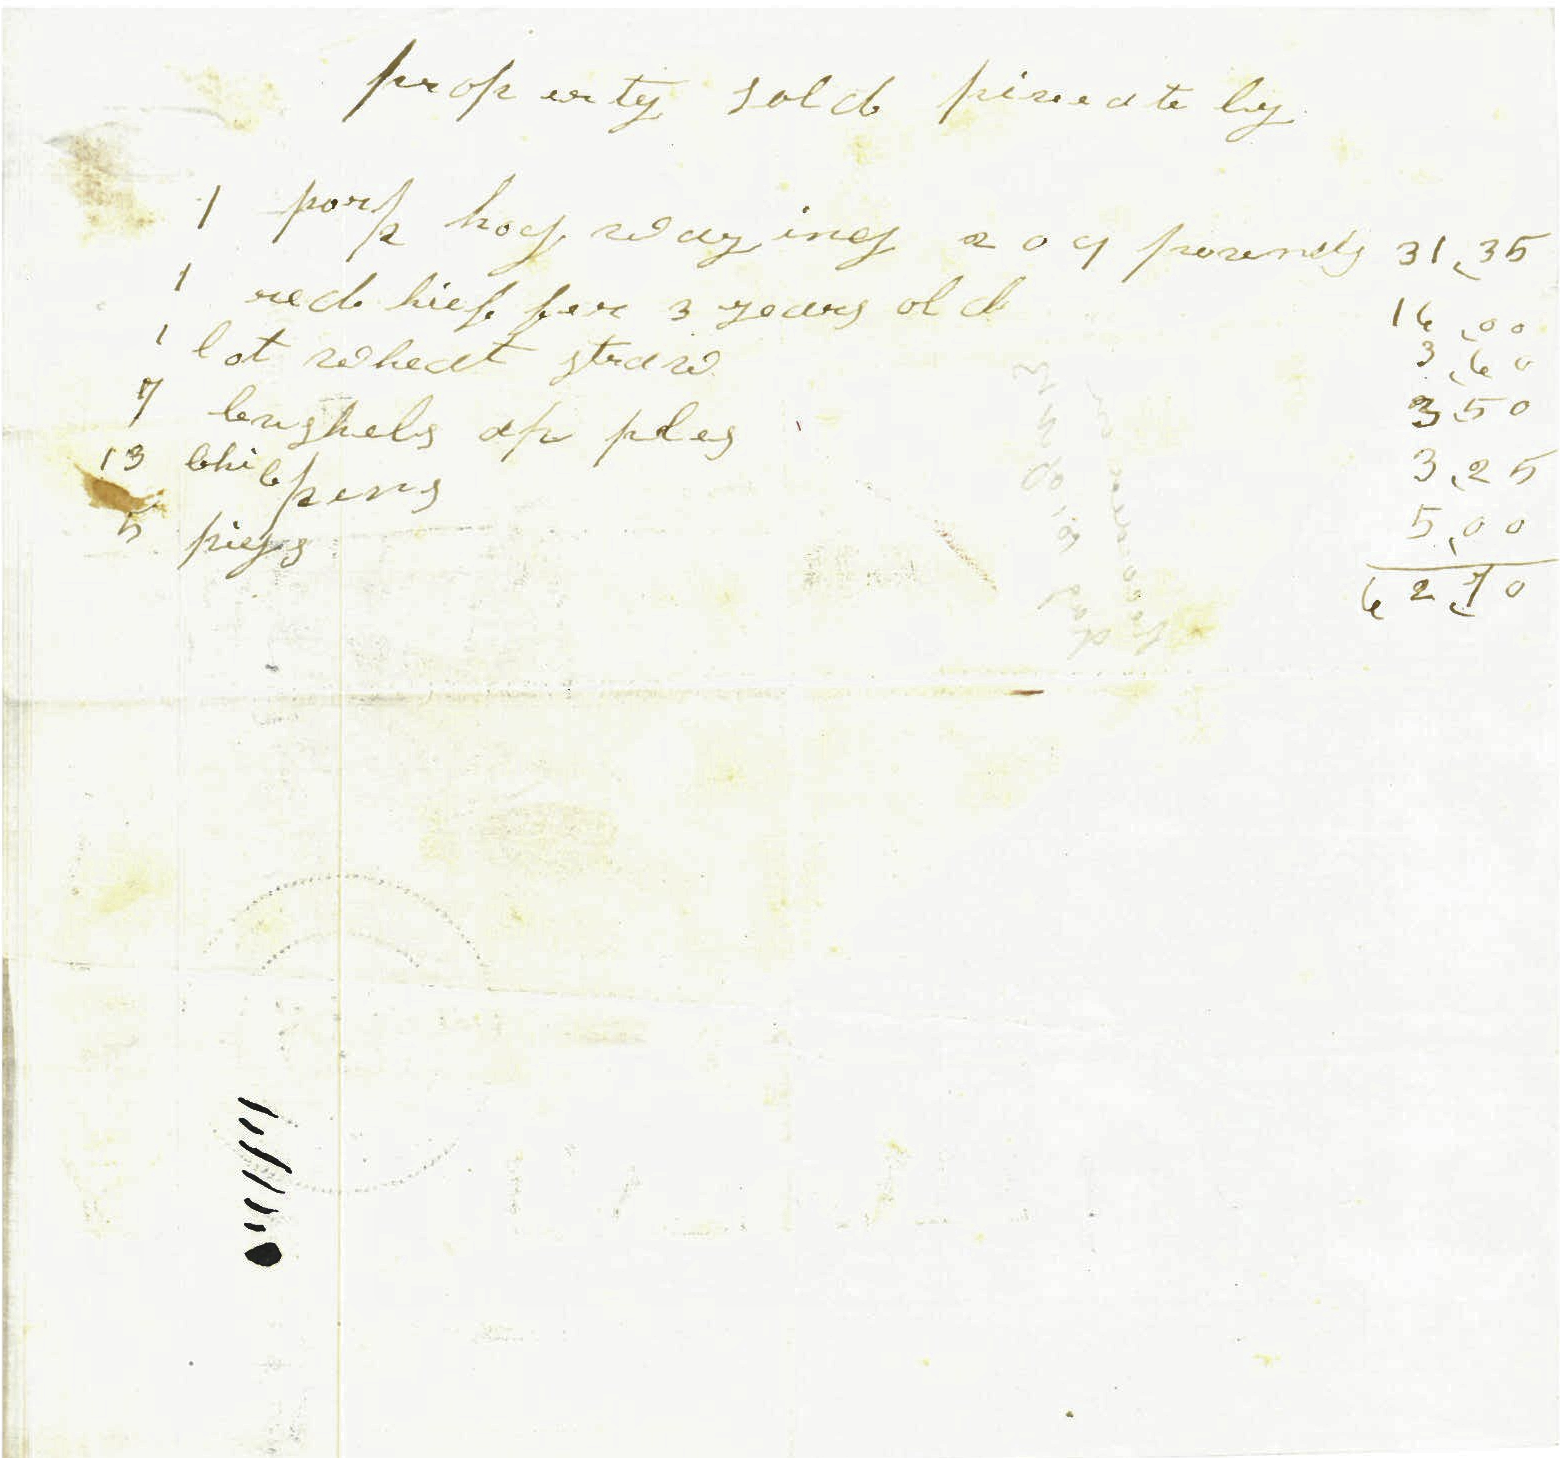 property sold privately
1 pork hog waying 209 pounds 31,35
1 red hieffer 3 years old 16,00
1 lot wheat straw 3,60
7 bushels apples 3,50
13 chickens 3,25
5 pigs 5,00
62,70